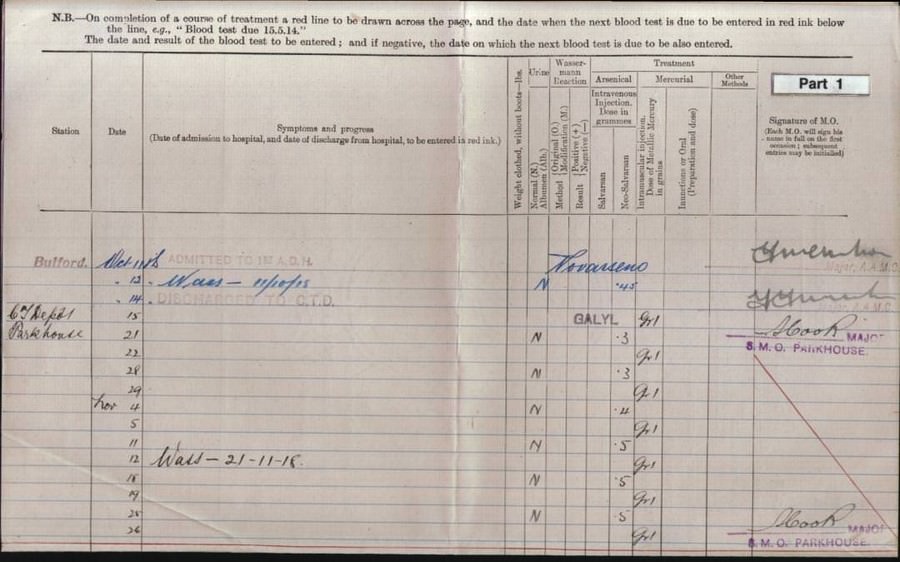 N.B.—On completion of a course of treatment a red line to be drawn across the page, and the date when the next blood test is due to be entered in red ink below
the line, e.g., "Blood test due 15.5.14."
The date and result of the blood test to be entered; and if negative, the date on which the next blood test is due to be also entered.
Station
Date
Symptoms and progress
(Date of admission to hospital, and date of discharge from hospital, to be entered in red ink.)
Weight clothed, without boots—lbs.
Urine
Normal (N.)
Albumen (Alb.)
Wasser-
mann
Reaction
Method {Original (O.)
Modification (M.)
Result {Positive (+)
Negative (—)
Treatment
Arsenical
Intravenous
Injection.
Dose in
grammes
Salvarsan
Neo-Salvarsan
Mercurial
Intramuscular injection.
Dose of Metallic Mercury
in grains
Inunctions or Oral
(Preparation and dose)
Other
Methods
Part 1
Signature of M.O.
(Each M.O. will sign his
name in full on the first
occasion; subsequent
entries may be initialled)
Bulford. Oct 11 ADMITTED TO 1st A.D.H. Novarseno
Major, A.A.M.C.
" 13. Wass — 11/10/18 N .45
" 14. DISCHARGED TO C.T.D.
CT Depot 15 GALYL Gr1
Parkhouse 21 N .3 Cook MAJOR
S.M.O. PARKHOUSE.
22 Gr1
28 N .3
29 Gr1
Nov 4 N .4
5 Gr1
11 N .5
12 Wass — 21-11-18. Gr1
18 N .5
19 Gr1
25 N .5 Cook MAJOR
26 Gr1 S.M.O. PARKHOUSE.